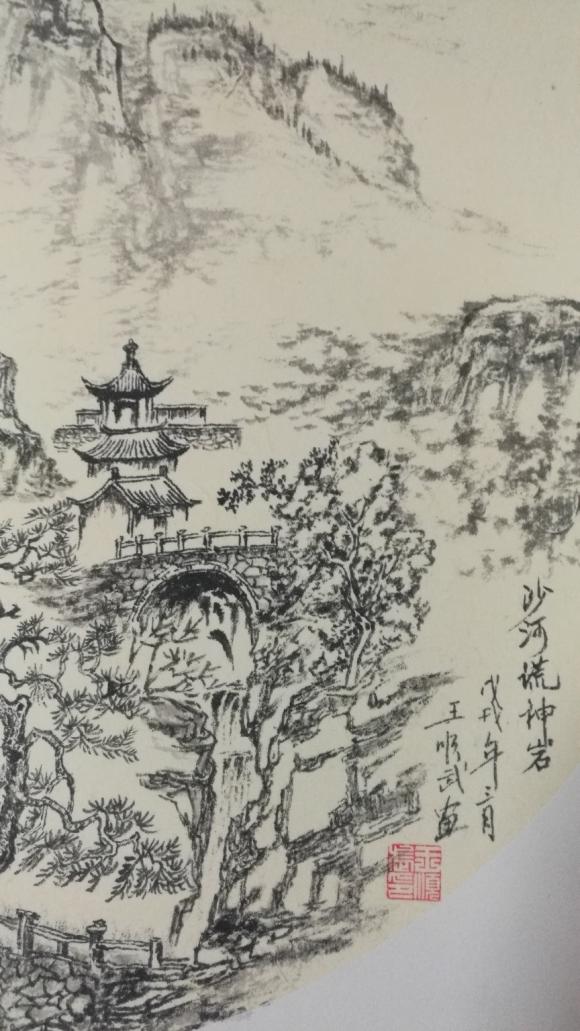 沙河谎神岩
戊戌年三月
王顺武画